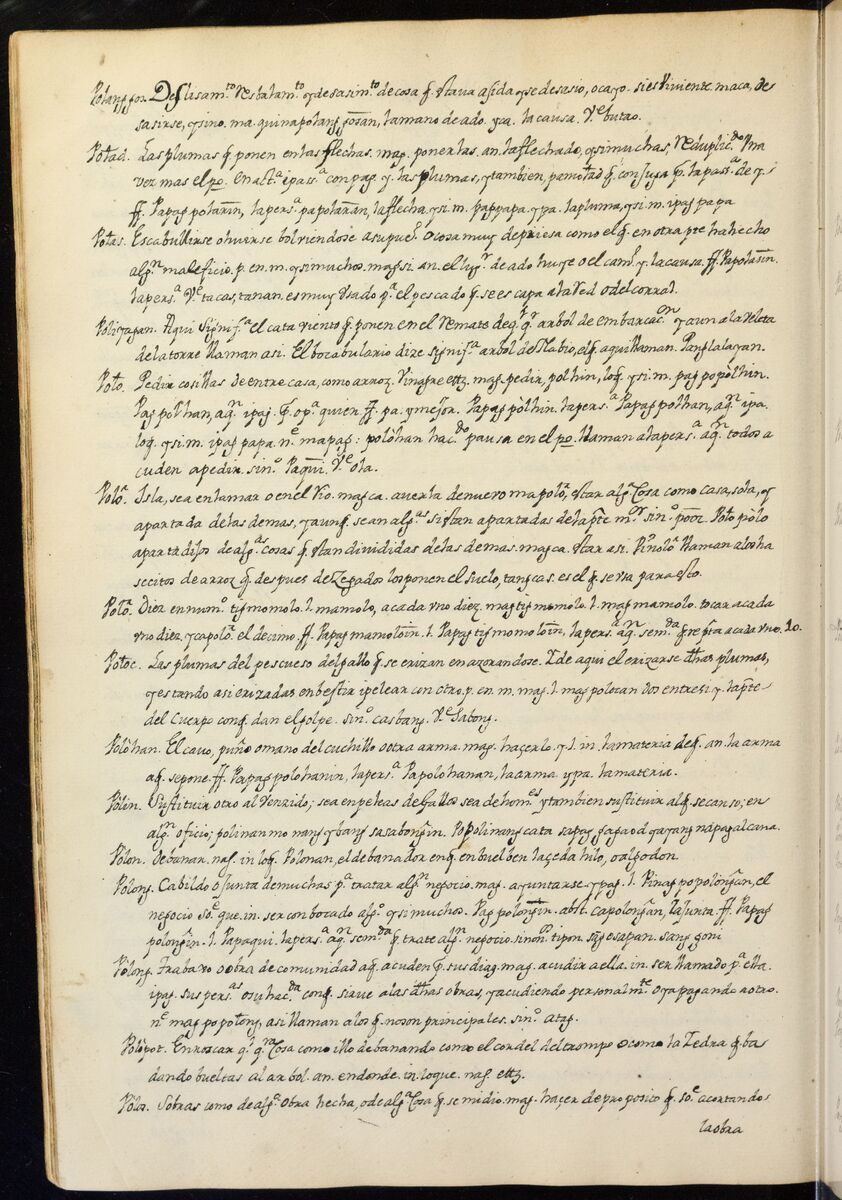 Potang gos. Deslisam.to resbalam.to y desasim.to de cosa q̃. stava asida y se desasio, o cayo. si es viviente. maca, des
sasirse, y si no. ma. quinapotang goran, la mano de ado. y ca. la causa. V.e butao.
Potad. Las plumas q̃ ponen en las flechas. mag. ponerlas. an. la flechado, y si muchas, reduplic.do Vna
vez mas el po. En act.a i pass.a con pag. y las plumas, y tambien, pamotad q̃. conjuga p̃. la pass.a de y. i
ff. Papag potarin, la pers.a papotaran, la flecha, y si. m. pagpapa. y pa. la pluma, y si. m. ipag papa
Potas. Escabullirse o huirse bolviendose a su pue.o o cosa muy depriesa como el q̃. en otra pte ha hecho
alg.n maleficio. p. en. m. y si muchos. mag si. an. el lug.r de ado huye o el cam.o y la causa. ff. Papotasin.
la pers.a V.e tacas, tanan. es muy vsado p.a el pescado q̃ se escapa a la red o del corral.
Poliyagan. Aqui signif.a el cata viento q̃. ponen en el remate de q.l q.r arbol de embarcac.n y aun a la veleta
de la torre llaman asi. El bocabulario dize signif.a arbol de Nabio, el q̃. aqui llaman. Panglalayan.
Polo. Pedir cosillas de entre casa, como arroz. Vinagre ettz. mag. pedir, polhin, loq̃. y si. m. pag popòlhin.
Pag polhan, aq.n ipag. p̃. op.a quien ff. pa. y mejor. Papag pòlhin. la pers.a Papag polhan, aq.n ipa.
loq̃. y si. m. ipag papa. n.e mapag: polòhan hac.do pausa en el po. llaman a la pers.a aq.n todos a
cuden a pedir. sin.o Paqui. V.e ola.
Polò. Isla, sea en la mar o en el Rio. magca. averla de nuevo mapolò, star alg.a Cosa como casa, sola, y
apartada de las demas, y aunq̃. sean alg.as si stan apartadas de la pte m.or sin.o póoc. Polo pòlo
apartadijos de alg.as cosas q̃. stan divididas de las demas. magca. star asi. Pinolò llaman a los ha
secitos de arroz q̃. despues de segados los ponen el suelo, tangcas. es el q̃. se vsa para esto.
Polò. Diez en num.o tigmomolo. l. mamolo, a cada vno diez. mag tigmomolo. l. mag mamolo. tocar a cada
vno diez, ycapolò. el decimo. ff. Papag mamoloin. l. Papag tigmomoloin, la pers.a aq.n sem.da q̃ repta a cada vno. 10.
Poloc. Las plumas del pescueso del gallo q̃. se erizan en azorandose. Y de aqui el erizarse dhas plumas,
y estando asi erizadas enbestir i pelear con otro. p. en. m. mag. l. mag polocan dos entre si. y la pte
del Cuerpo con q̃. dan el golpe. sin.o casbang. V.e sabong.
Polòhan. El cavo, puño o mano del cuchillo o otra arma. mag. haçerlo. y l. in. la materia de q̃. an. la arma
aq̃. se pone. ff. Papag polohanin, la pers.a Papolohanan, la arma. y pa. la materia.
Pòlin. Sustituir otro al venzido; sea en peleas de gallos sea de hom.es y tambien sustituir al q̃. se canso; en
alg.n oficio; polinan mo nang ybang sasabongin. Popolinang cata sapagsagaod yayang napagalcana.
Polon. debanar. nag. in. loq̃. Polonan, el debanador en q̃. enbuelben la çeda hilo, o algodon.
Polong. Cabildo o Junta de muchas p.a tratar alg.n negocio. mag. ajuntarse. ypag. l. Pinag popolongan, el
negocio so.e que. in. ser conbocado alg.o y si muchos. Pag polongin. abst. capolongan, la junta. ff. Papag
polongin. l. Papaqui. la pers.a aq.n sem.da q̃. trate alg.n negocio. sinon.o tipon. sygesapan. sanggoni
Pòlong. Trabaxo o obra de comunidad aq̃. acuden p̃. sus dias. mag. acudir a ella. in. ser llamado p.a ella.
ipag. sus pers.as o su hac.da con q̃. sirve a las dhas obras, y acudiendo personalm.te o ya pagando a otro.
n.e mag popolong, asi llaman a los q̃. no son principales. sin.o atag.
Polòpot. Enroscar q.l q.ra Cosa como illo debanando como el cordel del trompo o como la yedra q̃. ba
dando bueltas al arbol. an. en donde. in. loque. nag. ettz.
Pòlos. Sobras como de alg.a obra hecha, o de alg.a Cosa q̃. se midio. mag. haçer de proposito q̃. so.e acortando
la obra